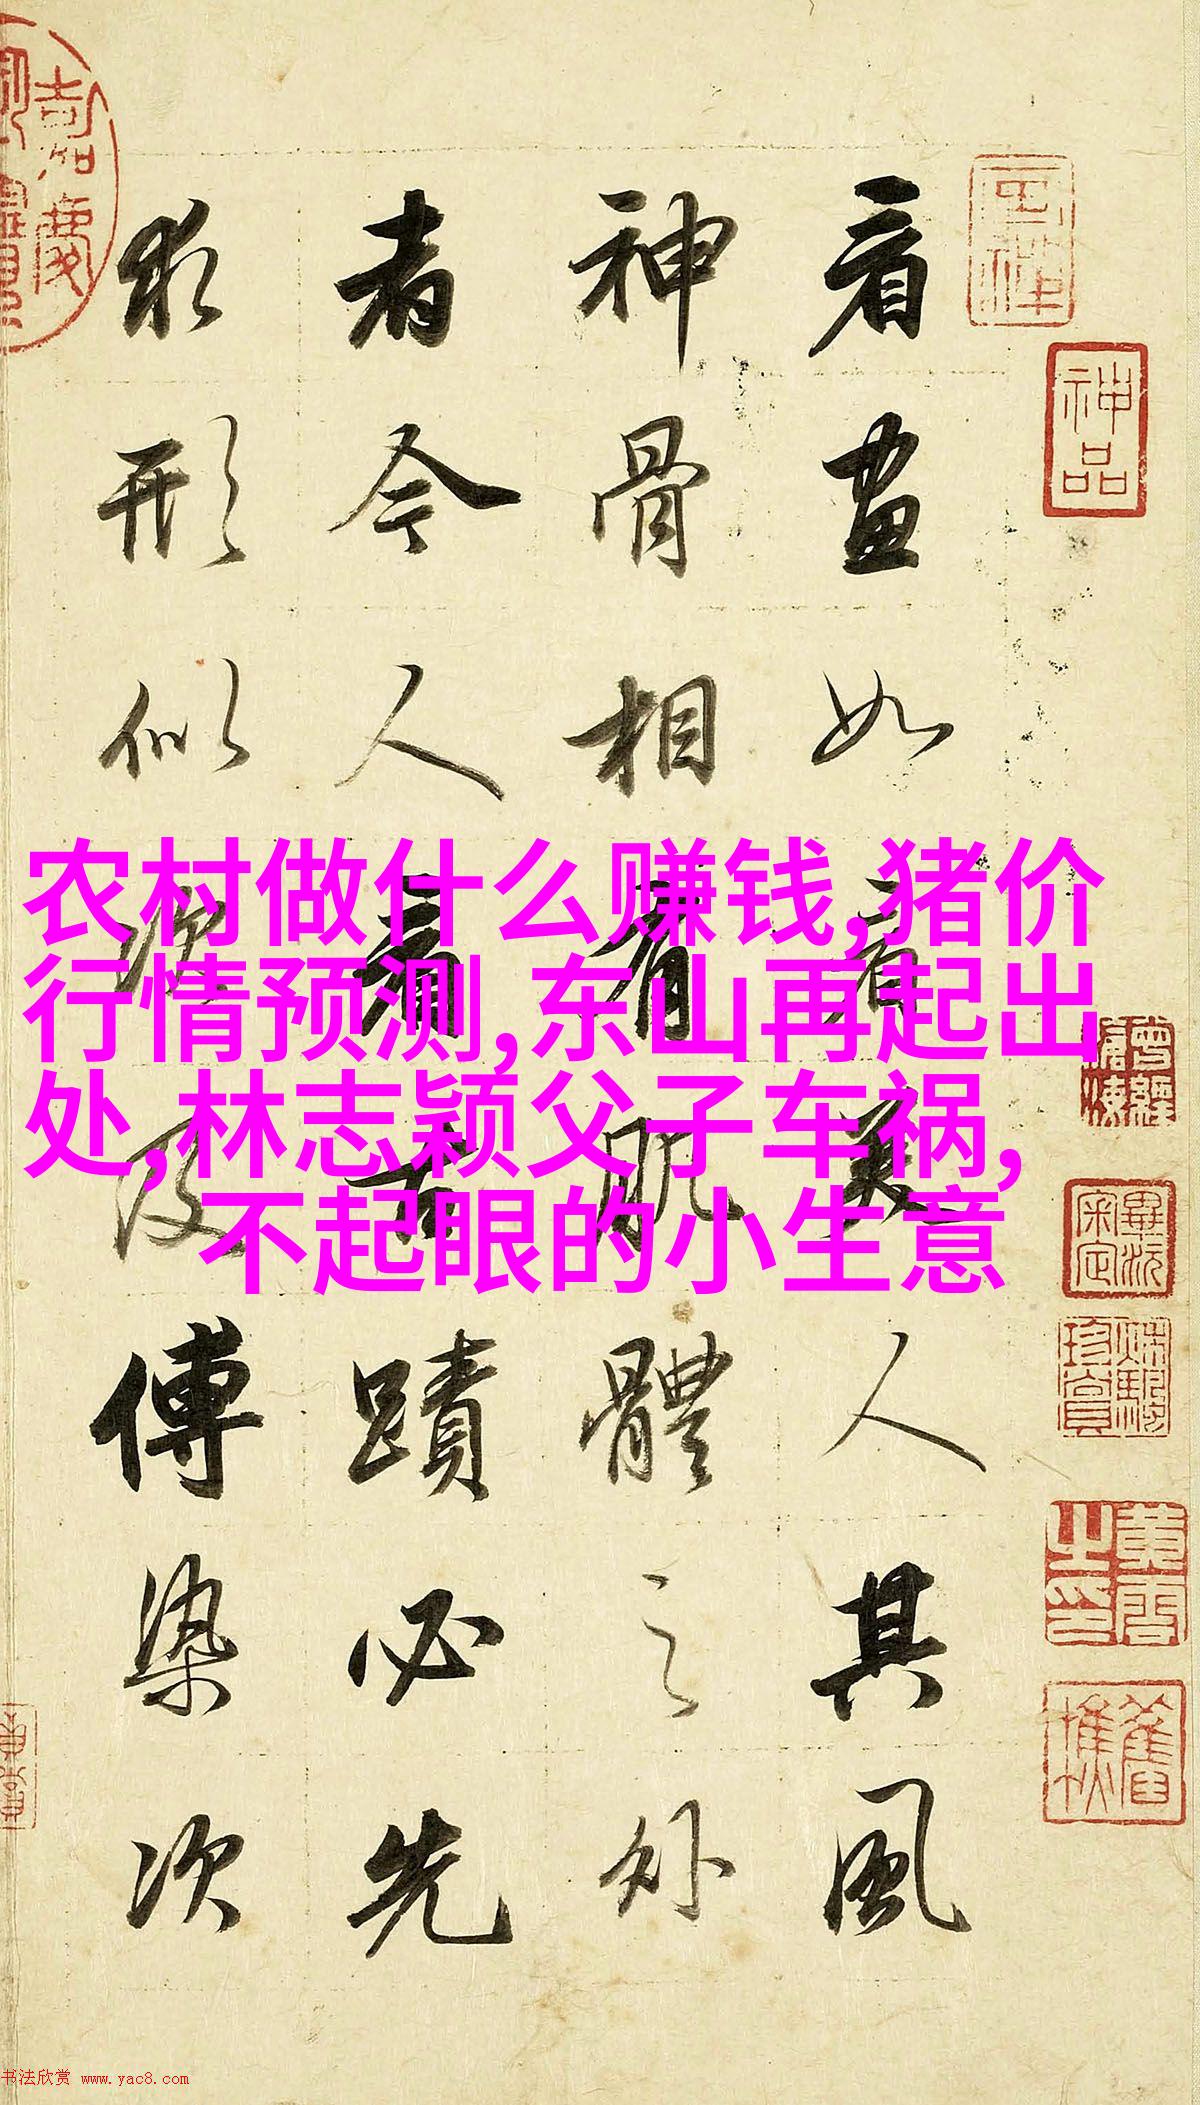 看画如看美人其風
神骨相有肌體之外
者今人看古蹟必先
求形似次及傅染次
农村做什么赚钱,猪价
行情预测,东山再起出
处,林志颖父子车祸,
不起眼的小生意
神品
嘉慶
书法欣赏 www.yac8.com